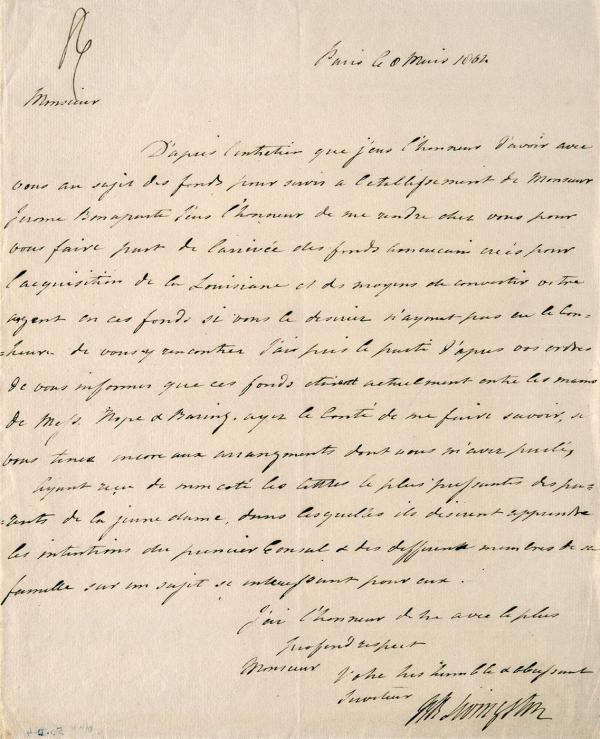 Paris le 8 Mars 1804
Monsieur
D'apres l'entretier que j'eus l'honneur d'avoir avec
vous au sujet des fonds pour servir a l'etablissement de Monsieur
Jerome Bonaparte J'eus l'honneur de me rendre chez vous pour
vous faire part de l'arrivée des fonds americain créés pour
l'acquisition de la Louisiane et des moyens de convertir votre
argent en ces fonds si vous le desiriez n'ayant pas eu le bon-
=heure de vous y rencontrer J'ai pris le parti d'apres vos ordres
de vous informer que ces fonds etaient actuelment entre les mains
de Mess. Hope & Baring. ayez la bonté de me faire savoir, si
vous tenez encore aux arrangments dont vous m'avez parlé,
Ayant reçu de mon coté les lettres le plus pressantes des pa-
=rents de la jeune dame, dans lesquelles ils desirent apprendre
les intentions du premier Consul & des differents membres de sa
famille sur un sujet si interessant pour eux.
J'ai l'honneur de etre avec le plus
profond respect
Monsieur Votre tres humble & obeissant
Serviteur
Livingston